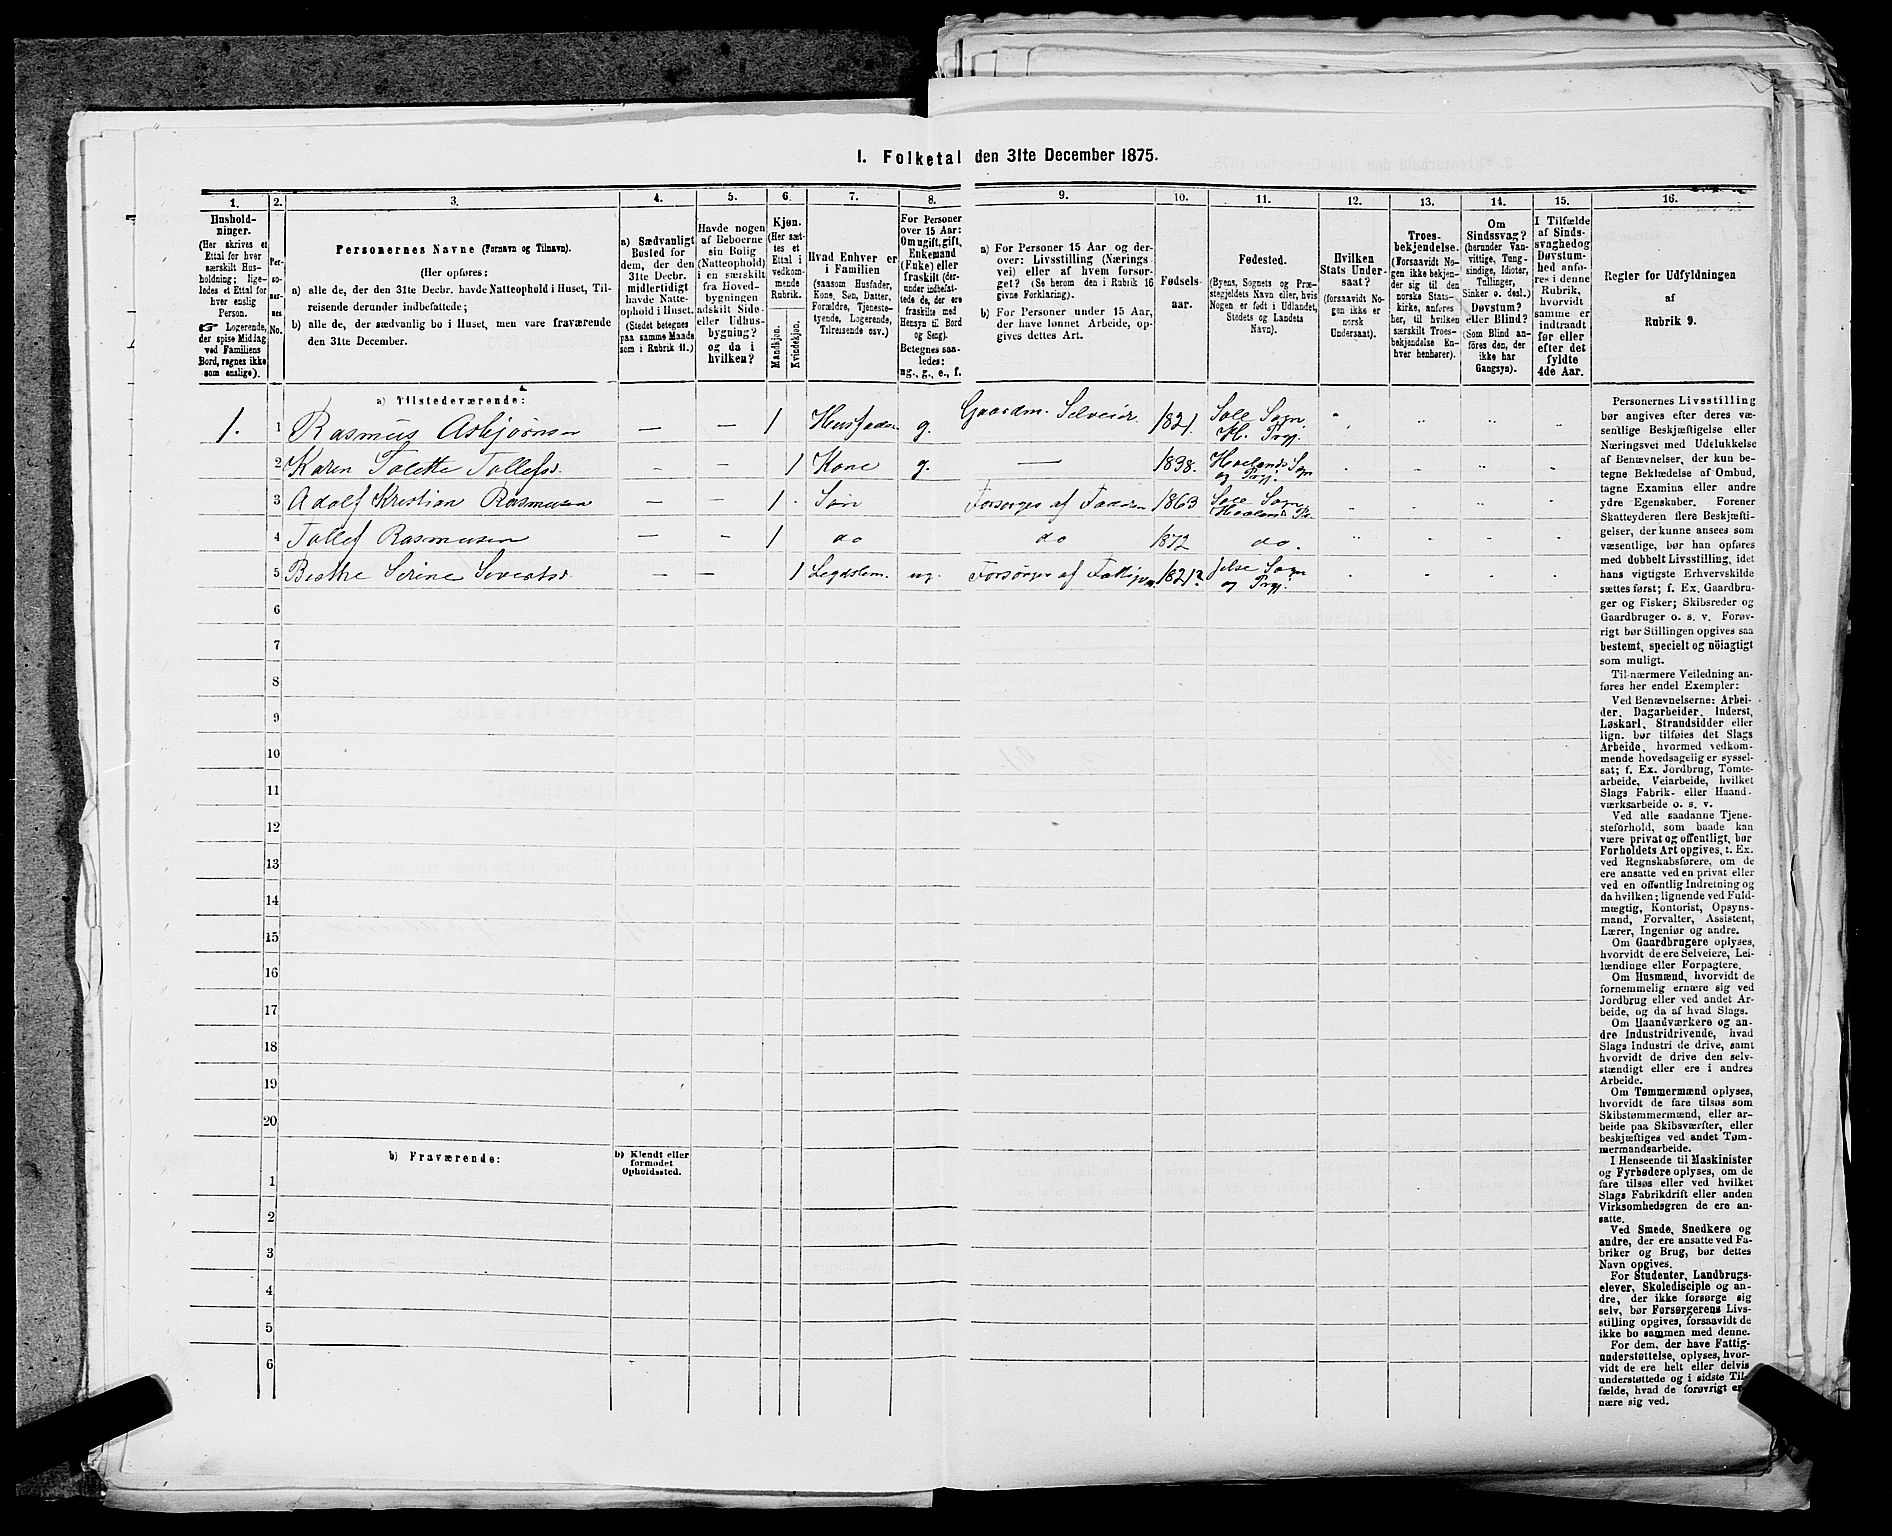 I. Folketal den 31te December 1875.
1. 2. 3. 4. 5. 6. 7. 8. 9. 10. 11. 12. 13. 14. 15. 16.
Hushold-
ninger.
(Her skrives et
Ettal for hver
særskilt Hus-
holdning; lige-
ledes et Ettal for
hver enslig
Person.
☞ Logerende,
der spise Midlag
ved Familiens
Bord, regnes ikke
som enslige).
Per-
so-
ner-
nes
No.
Personernes Navne (Fornavn og Tilnavn).
(Her opføres:
a) alle de, der den 31te Decbr. havde Natteophold i Huset, Til-
reisende derunder indbefattede;
b) alle de, der sædvanlig bo i Huset, men vare fraværende
den 31te December.
a) Sædvanligt
Bosted for
dem, der den
31te Decbr.
midlertidigt
havde Natte-
ophold i Huset.
(Stedet betegnes
paa samme Maade
som i Rubrik 11.)
Havde nogen
af Beboerne
sin Bolig
(Natteophold)
i en særskilt
fra Hoved-
bygningen
adskilt Side-
eller Udhus-
bygning?
og da i
hvilken?
Kjøn.
(Her sæt-
tes et
Ettal i
vedkom-
mende
Rubrik.
Mandkjøn.
Kvindekjøn.
Hvad Enhver er
i Familien
(saasom Husfader,
Kone, Søn, Datter,
Forældre, Tjeneste-
tyende, Logerende,
Tilreisende osv.)
For Personer
over 15 Aar:
Om ugift, gift,
Enkemand
(Enke) eller
fraskilt (der-
under indbefat-
tede de, der ere
fraskilte med
Hensyn til Bord
og Seng).
Betegnes saa-
ledes:
ug., g., e., f.
a) For Personer 15 Aar og der-
over: Livsstilling (Nærings-
vei) eller af hvem forsør-
get? (Se herom den i Rubrik 16
givne Forklaring).
b) For Personer under 15 Aar,
der have lønnet Arbeide, op-
gives dettes Art.
Fødsels-
aar.
Fødested.
(Byens, Sognets og Præ-
stegjeldets Navn eller, hvis
Nogen er født i Udlandet,
Stedets og Landets
Navn).
Hvilken
Stats Under-
saat?
(forsaavidt No-
gen ikke er
norsk
Undersaat).
Troes-
bekjendelse.
(Forsaavidt No-
gen ikke bekjen-
der sig til den
norske Stats-
kirke, anføres
her, til hvilken
særskilt Troes-
bekjendelse En-
hver henhører).
Om
Sindssvag?
(herunder Van-
vittige, Tung-
sindige, Idioter,
Tullinger,
Sinker o. desl.)
Døvstum?
eller Blind?
(Som Blind an-
føres den, der
ikke har
Gangsyn).
I Tilfælde
af Sinds-
svaghed og
Døvstum-
hed anfø-
res i denne
Rubrik,
hvorvidt
samme er
indtraadt
før eller
efter det
fyldte
4de Aar.
Regler for Udfyldningen
af
Rubrik 9.
a) Tilstedeværende:
1. 1 Rasmus Asbjørnsen — — 1 Husfader g. Gaardm. Selveier 1821. Sole Sogn
H. Prgj.
2 Karen Tolette Tollefsd. — — 1 Kone g. — 1838. Hoelands Sogn
og Prgj.
3 Adolf Kristian Rasmusen — — 1 Søn Forsørges af Faderen 1863 Sole Sogn
Hoelands Pr.
4 Tollef Rasmusen — — 1 do do 1872 do.
5 Berthe Serine Sivertsd. — — 1 Legdslem. ug. Forsørges af Fattigv. 1821? Jelse Sogn
og Prgj.
6
7
8
9
10
11
12
13
14
15
16
17
18
19
20
b) Fraværende:
b) Kjendt eller
formodet
Opholdssted.
1
2
3
4
5
6
Personernes Livsstilling
bør angives efter deres væ-
sentlige Beskjæftigelse eller
Næringsvei med Udelukkelse
af Benævnelser, der kun be-
tegne Beklædelse af Ombud,
tagne Examina eller andre
ydre Egenskaber. Forener
Skatteyderen flere Beskjæfti-
gelser, der kunne ansees som
væsentlige, bør han opføres
med dobbelt Livsstilling, idet
hans vigtigste Erhvervskilde
sættes først; f. Ex. Gaardbru-
ger og Fisker; Skibsreder og
Gaardbruger o. s. v. Forøv-
rigt bør Stillingen opgives saa
bestemt, specielt og nöiagtigt
som muligt.
Til nærmere Veiledning an-
føres her endel Exempler:
Ved Benævnelserne: Arbei-
der, Dagarbeider, Inderst,
Løskarl, Strandsidder eller
lign. bør tilføies det Slags
Arbeide, hvormed vedkom-
mende hovedsagelig er syssel-
sat; f. Ex. Jordbrug, Tomte-
arbeide, Veiarbeide, hvilket
Slags Fabrik- eller Haand-
værksarbeide o. s. v.
Ved alle saadanne Tjene-
steforhold, som baade kan
være privat og offentligt, bør
Forholdets Art opgives, t. Ex.
ved Regnskabsførere, om de
ere ansatte ved en privat eller
ved en offentlig Indretning og
da hvilken; lignende ved Fuld-
mægtig, Kontorist, Opsyns-
mand, Forvalter, Assistent,
Lærer, Ingeniør og andre.
Om Gaardbrugere oplyses,
hvorvidt de ere Selveiere, Lei-
lændinge eller Forpagtere.
Om Husmænd, hvorvidt de
fornemmelig ernære sig ved
Jordbrug eller ved andet Ar-
beide, og da af hvad Slags.
Om Haandværkere og an-
dre Industridrivende, hvad
Slags Industri de drive, samt
hvorvidt de drive den selv-
stændigt eller ere i andres
Arbeide.
Om Tømmermænd oplyses,
hvorvidt de fare tilsøs som
Skibstømmermænd, eller ar-
beide paa Skibsværfter, eller
beskjæftiges ved andet Tøm-
mermandsarbeide.
I Henseende til Maskinister
og Fyrbødere oplyses, om de
fare tilsøs eller ved hvilket
Slags Fabrikdrift eller anden
Virksomhedsgren de ere an-
satte.
Ved Smede, Snedkere og
andre, der ere ansatte ved Fa-
briker og Brug, bør dettes
Navn opgives.
For Studenter, Landbrugs-
elever, Skoledisciple og an-
dre, der ikke forsørge sig
selv, bør Forsørgerens Livs-
stilling opgives, forsaavidt de
ikke bo sammen med denne.
For dem, der have Fattig-
understøttelse, oplyses, hvor-
vidt de ere helt eller delvis
understøttede og i sidste Til-
fælde, hvad de forøvrigt er-
nære sig ved.